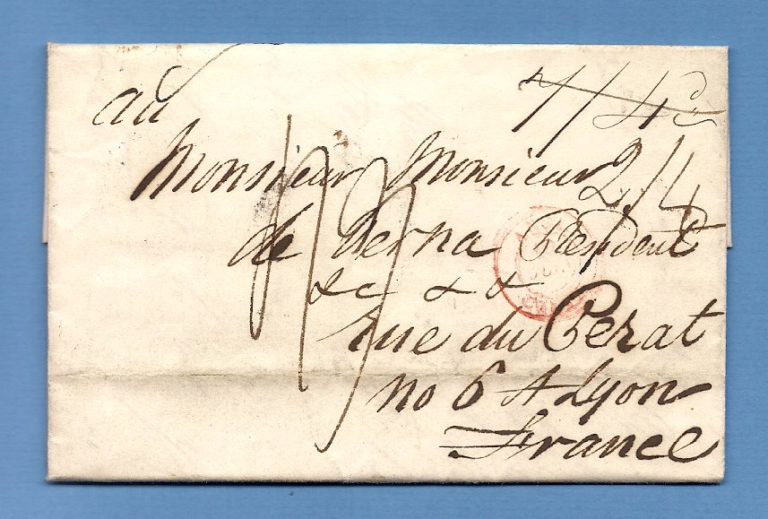 au
7/4
Monsieur Monsieur
2/4
de Verna President
&c & &
rue du Perat
no 6 A Lyon
France